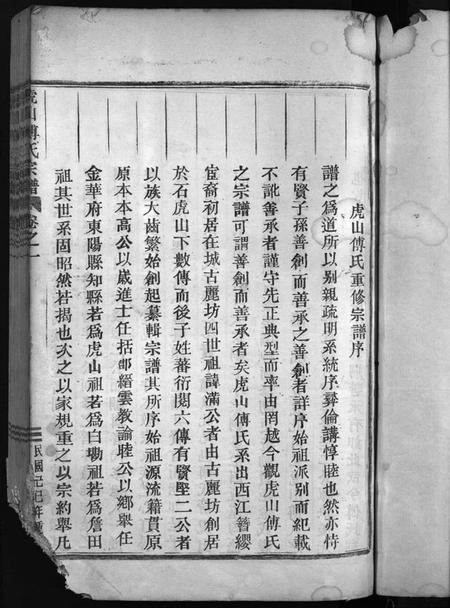 虎山傅氏重修宗譜序
譜之爲道所以别親疏明系統序彝倫講惇睦也然亦恃
有賢子孫善創而善承之善創者詳序始祖派别而紀載
不訛善承者謹守先正典型而率由罔越今觀虎山傅氏
之宗譜可謂善創而善承者矣虎山傅氏系出西江簪纓
宦裔初居在城古麗坊四世祖諱滿公者由古麗坊創居
於石虎山下數傳而後子姓蕃衍閱六傳有賢堅二公者
以族大齒繁始創起纂輯宗譜其所序始祖源流籍貫原
原本本高公以歲進士任括郡縉雲教諭睦公以鄉舉任
金華府東陽縣知縣若爲虎山祖若爲白墈祖若爲詹田
祖其世系固昭然若揭也次之以家規重之以宗約舉凡
虎山傅氏宗譜 卷之一
民國己巳年重